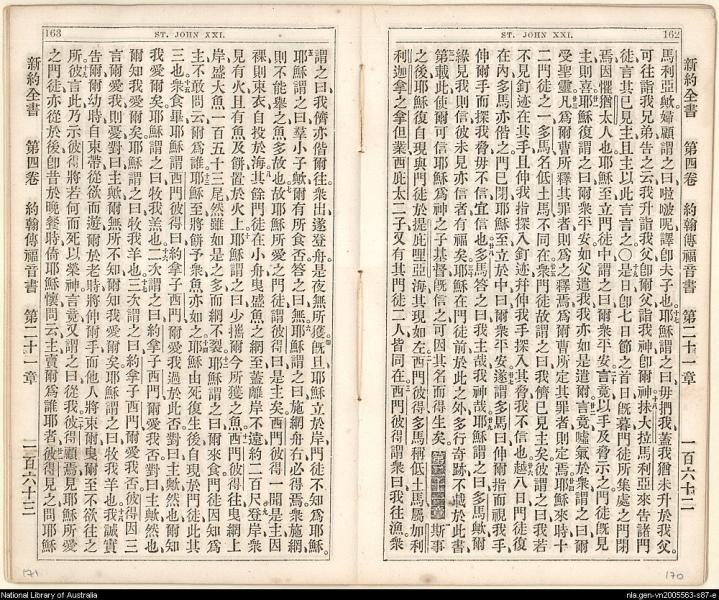 162
ST. JOHN XXI.
新約全書 第四卷 約翰傳福音書 第二十一章 一百六十二
馬利亞歟婦顧謂之曰啦㗑呢譯卽夫子也耶穌謂之曰毋捫我蓋我猶未升於我父
可往詣我兄弟吿之云我升詣我父卽爾父詣我神卽爾神抹大拉馬利亞來吿諸門
徒言其已見主且主以此言言之〇是日卽七日節之首日旣暮門徒所集處之門閉
焉因懼猶太人也耶穌至立門徒中謂之曰爾衆平安言竟以手及脅示之門徒旣見
主則喜耶穌復謂之曰爾衆平安如父遣我我亦如是遣爾言竟噓氣於衆謂之曰爾
受聖靈凡爲爾曹所釋其罪者則爲之釋焉爲爾曹所定其罪者則定焉耶穌來時十
二門徒之一多馬名低土馬不同在衆門徒故謂之曰我儕已見主矣彼謂之曰我若
不見釘迹在其手且伸我指探入釘迹幷伸我手探入其脅我不信也越八日門徒復
在內多馬亦偕之門已閉耶穌至立於中曰爾衆平安遂謂多馬曰伸爾指而視我手
伸爾手而探我脅毋不信宜信也多馬答之曰我主哉我神哉耶穌謂之曰多馬歟爾
緣見我則信彼未見亦信者有福矣耶穌在門徒前於此之外多行奇跡不載於此書
第載此使爾可信耶穌爲神之子基督旣信之可因其名而得生矣 第二十一章 斯事
之後耶穌復自現與門徒於提庇哩亞海其現如左西門彼得多馬稱低土馬屬加利
利迦拿之拿但業西庇太二子又有其門徒二人皆同在西門彼得謂衆曰我往漁衆
163
ST. JOHN XXI.
新約全書 第四卷 約翰傳福音書 第二十一章 一百六十三
謂之曰我儕亦偕爾往衆出遂登舟是夜無所獲旣旦耶穌立於岸門徒不知爲耶穌
耶穌謂之曰羣小子歟爾有所食否答之曰無耶穌謂之曰施網舟右必得焉衆施網
則不能舉之魚多故也故耶穌所愛之門徒謂彼得曰是主矣西門彼得一聞是主因
裸則束衣自投於海其餘門徒在小舟曳盛魚之網至蓋離岸不遠約二百尺登岸衆
見有火且有魚及餅置於火上耶穌謂之曰少攜爾今所獲之魚西門彼得往曳網上
岸盛大魚一百五十三尾然雖如是之多而網不裂耶穌謂之曰爾來食門徒因知爲
主不敢問云爾爲誰耶穌至將餅予衆魚亦如之耶穌由死復生後自現於門徒此其
三也衆食畢耶穌謂西門彼得曰約拿子西門爾愛我過於此否對曰主歟然也爾知
我愛爾矣耶穌謂之曰牧我羔也二次謂之曰約拿子西門爾愛我否對曰主歟然也
爾知我愛爾矣耶穌謂之曰牧我羊也三次謂之曰約拿子西門爾愛我否彼得因三
言爾愛我則憂對曰主歟爾無所不知爾知我愛爾矣耶穌謂之曰牧我羊也我誠實
吿爾爾幼時自束帶從欲而遊爾於老時將伸爾手而他人將束爾曳爾至不欲往之
所彼言此乃示彼得將若何而死以榮神言竟又謂之曰從我彼得顧焉見耶穌所愛
之門徒亦從於後卽昔於晚餐時倚耶穌懷問云主賣爾爲誰耶者彼得見之問耶穌
171
170
National Library of Australia
nla.gen-vn2005563-s87-e